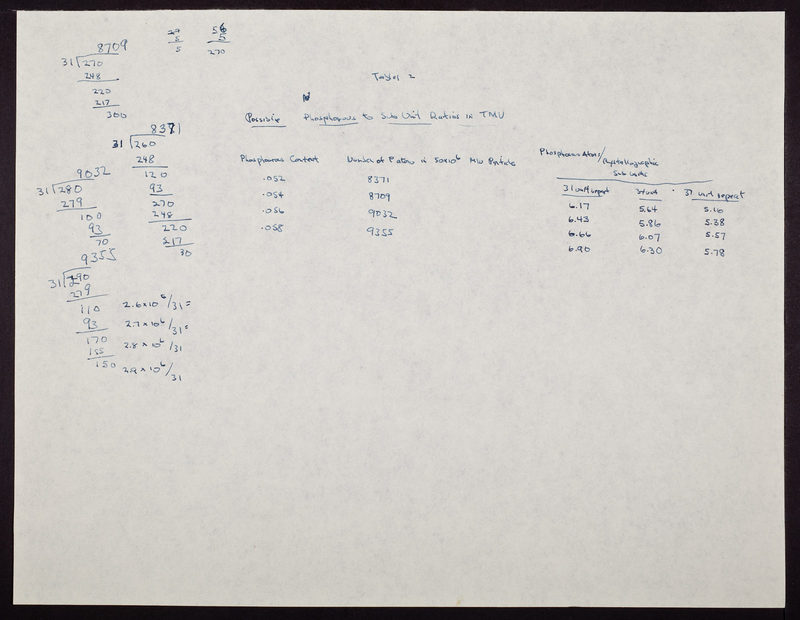 8709
31 270
248
220
217
300
27
5
5
56
5
270
8371
31 260
248
120
93
270
248
220
217
30
9032
31 280
279
100
93
70
9355
31 290
279
110
93
170
155
150
2.6×10⁶/31=
2.7×10⁶/31=
2.8×10⁶/31
2.9×10⁶/31
Table 2
Possible Phosphorous to Sub Unit Ratios in TMV
Phosphorous Content Number of P atoms in 50×10⁶ MW Particle Phosphorous Atoms/Crystallographic Sub Units
31 unit repeat 34 unit 37 unit repeat
.052 8371 6.17 5.64 5.16
.054 8709 6.43 5.86 5.38
.056 9032 6.66 6.07 5.57
.058 9355 6.90 6.30 5.78